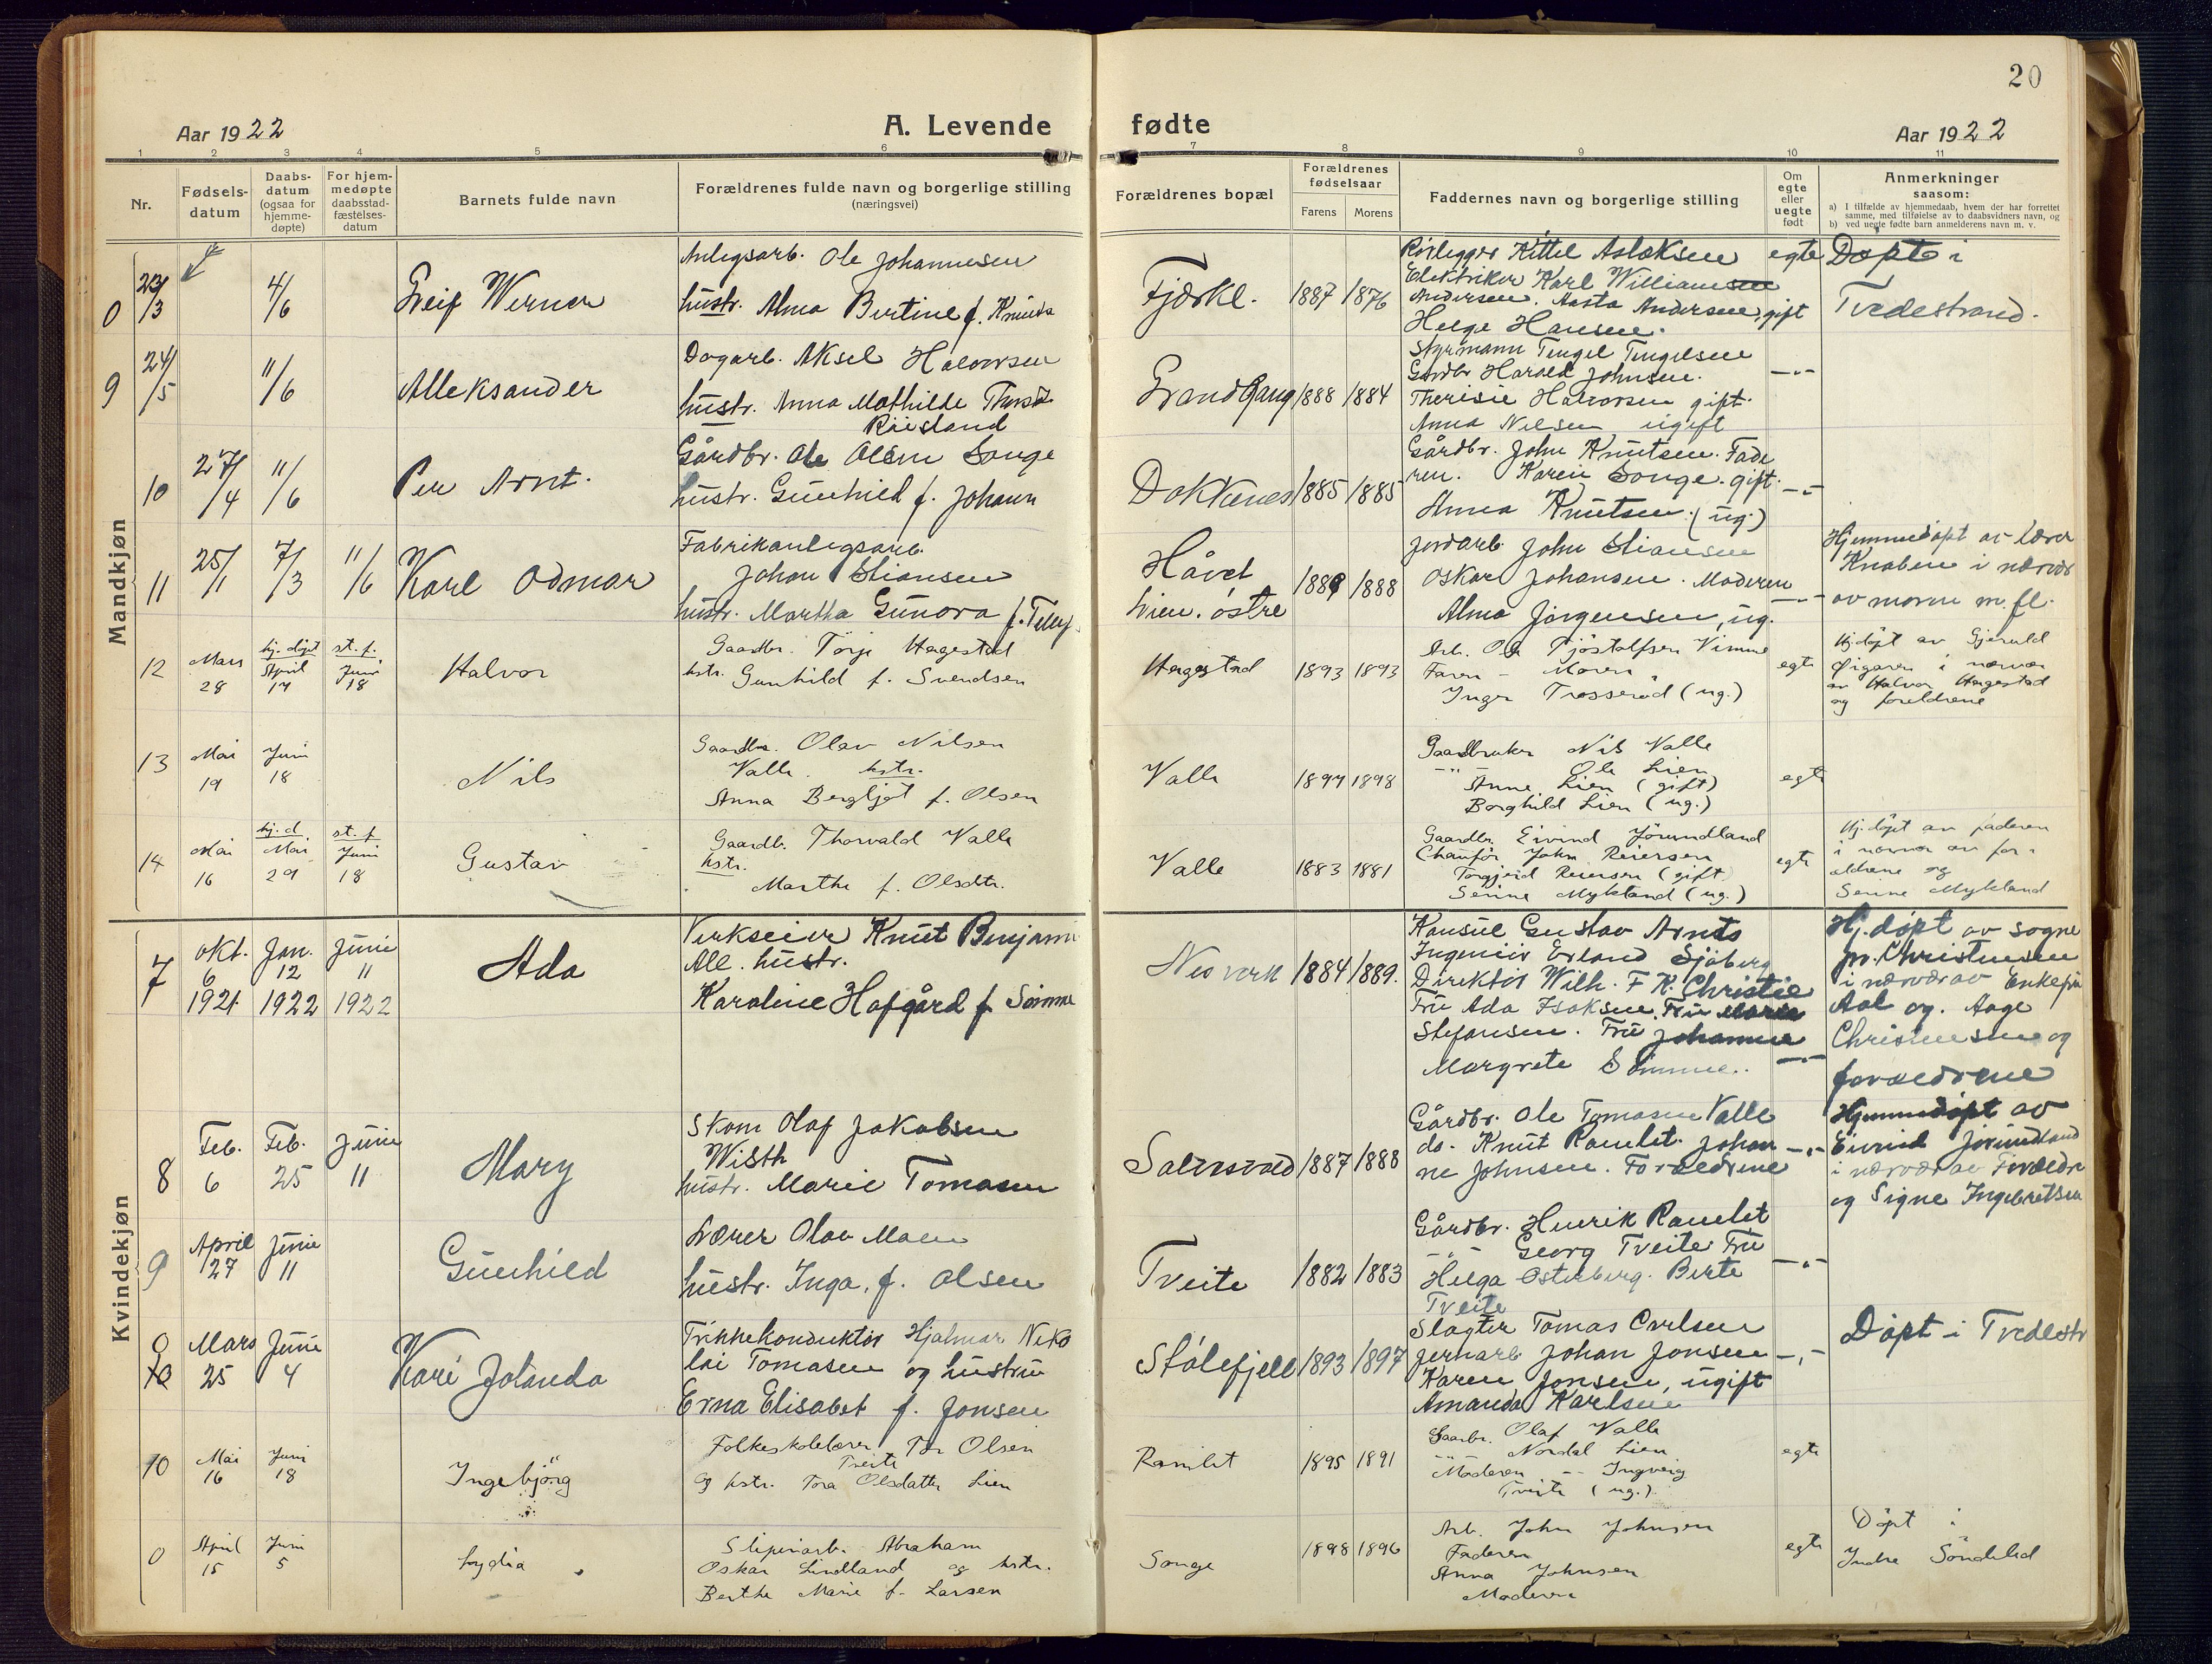 20
Aar 1922
A. Levende fødte
Aar 1922
1 2 3 4 5 6 7 8 9 10 11
Nr.
Fødsels-
datum
Daabs-
datum
(ogsaa for
hjemme-
døpte)
For hjem-
medøpte
daabsstad-
fæstelses-
datum
Barnets fulde navn
Forældrenes fulde navn og borgerlige stilling
(næringsvei)
Forældrenes bopæl
Forældrenes
fødselsaar
Farens Morens
Faddernes navn og borgerlige stilling
Om
egte
eller
uegte
født
Anmerkninger
saasom:
a) I tilfælde av hjemmedaab, hvem der har forrettet
samme, med tilføielse av to daabsvidners navn, og
b) ved uegte fødte barn anmelderens navn m. v.
Mandkjøn
0 23/3 4/6 Leif Werner
Anlegsarb. Ole Johannesen
hustr. Alma Bertine f. Knuds
Fjærkl. 1887 1876
Rørlegger Kittel Aslaksen
Elektriker Karl Williamsen
Andersen. Aasta Andersen, gift
Helge Hansen.
egte
Døpt i
Tvedestrand.
9 24/5 11/6 Alleksander
Dagarb. Aksel Halvorsen
hustr. Anna Mathilde
Røisland
1888 1884
Styrmann Tengel Tengelsen
Gardbr Harald Johnsen.
Therisie Halvorsen gift.
Anna Nilsen ugift
-"-
10 27/4 11/6 Per Arnt.
Gårdbr. Ole Olsen Songe
hustr. Gunhild f. Johann
Dokkenes 1885 1885
Gårdbr. John Knutsen. Fade
ren. Karen Songe. gift.
Anna Knutsen. (ug.)
-"-
11 25/1 7/3 11/6 Karl Odmar
Fabrikanlegsarb.
Johan Stiansen
hustr. Martha Gunora f. Tellef
Håvet
østre 1889 1888
Jordarb. John Stiansen
Oskar Johansen. Moderen
Alma Jørgensen, ug.
-"-
Hjemmedøpt av lærer
Knaben i nærvær
av moren m. fl.
12 Mars 28 hj. døpt April 17 st. f. Juni 18 Halvor
Gaardbr. Torje Hegestad
hstr. Gunhild f. Svendsen
Hegestad 1893 1893
Arb. Ole Tjøstolfsen Vimme
Faren - Moren
Inger Trosserød (ug.)
egte
Hj. døpt av Gjeruld
Øigaren i nærvær
av Halvor Hegestad
og foreldrene
13 Mai 19 Juni 18 Nils
Gaardbr. Olav Nilsen
Valle. hstr.
Anna Bergljot f. Olsen
Valle 1894 1898
Gaardbruker Nils Valle
-"- Ole Lien
Anne Lien (gift)
Borghild Lien (ug.)
egte
14 Mai 16 hj. d. Mai 29 st. f. Juni 18 Gustav
Gaardb. Thorvald Valle
hstr.
Marthe f. Olsdtr.
Valle 1883 1881
Gaardbr. Eivind Jørundland
Chaufør John Reiersen
Torgjerd Reiersen (gift)
Serine Mykland (ug.)
egte
Hj. døpt av faderen
i nærvær av for-
ældrene og
Serine Mykland
Kvindekjøn
7 Okt. 6 1921 Jan. 12 1922 Juni 11 1922 Ada
Verkseier Knut Benjamin
All. hustr.
Karoline Hofgård f. Sømme
Nes verk 1884 1889.
Konsul Gustav Arntz
Ingeniør Erland Sjøberg
Direktør Wilh. F. K. Christie
Fru Ada Isaksen. Fru Marie
Stefansen. Fru Johanne
Margrete Sømme.
-"-
Hj. døpt av sogne
pr. Christensen
i nærvær av Enkefru
Aal og. Aage
Christensen og
forældrene
8 Feb. 6 Feb. 25 Juni 11 Mary
Skom Olaf Jakobsen
Wisth
hustr. Marie Tomasen
Salvesvold 1887 1888
Gårdbr. Ole Tomasen Valle
do. Knut Ramlet. Johan
ne Johnsen. Forældrene
-"-
Hjemmedøpt av
Eivind Jørundland
i nærvær av Forældre
og Signe Ingebretsen
9 April 27 Juni 11 Gunhild
Lærer Olav Moen
hustr. Inga, f. Olsen
Tveite 1882 1883
Gårdbr. Henrik Ramlet
-"- Georg Tveite Fru
Helga Østerberg. Berte
Tveite
-"-
0 Mars 25 Juni 4 Kari Jolanda
Trikkekonduktør Hjalmar Niko
lai Tomasen og hustru
Erna Elisabet f. Jonsen
Stølefjell 1893 1897
Slagter Tomas Carlsen
Jernarb Johan Jonsen
Karen Jonsen, ugift
Amanda Karlsen
-"-
Døpt i Tvedestr
10 Mai 16 Juni 18 Ingebjörg
Folkeskolelærer Tor Olsen
Tveite
og hstr. Tora Olsdatter Lien
Ramlet 1895 1891
Gaardbr. Olaf Valle
Nordal Lien
Moderen -"- Ingveig
Tveite (ug.).
egte
0 April 15 Juni 5 Lydia
Sliperiarb. Abraham
Oskar Lindland og hstr.
Berthe Marie f. Larsen
Songe 1898 1896
Arb. John Johnsen
Faderen
Anna Johnsen
Moderen
egte
Døpt i
Indre Søndeled